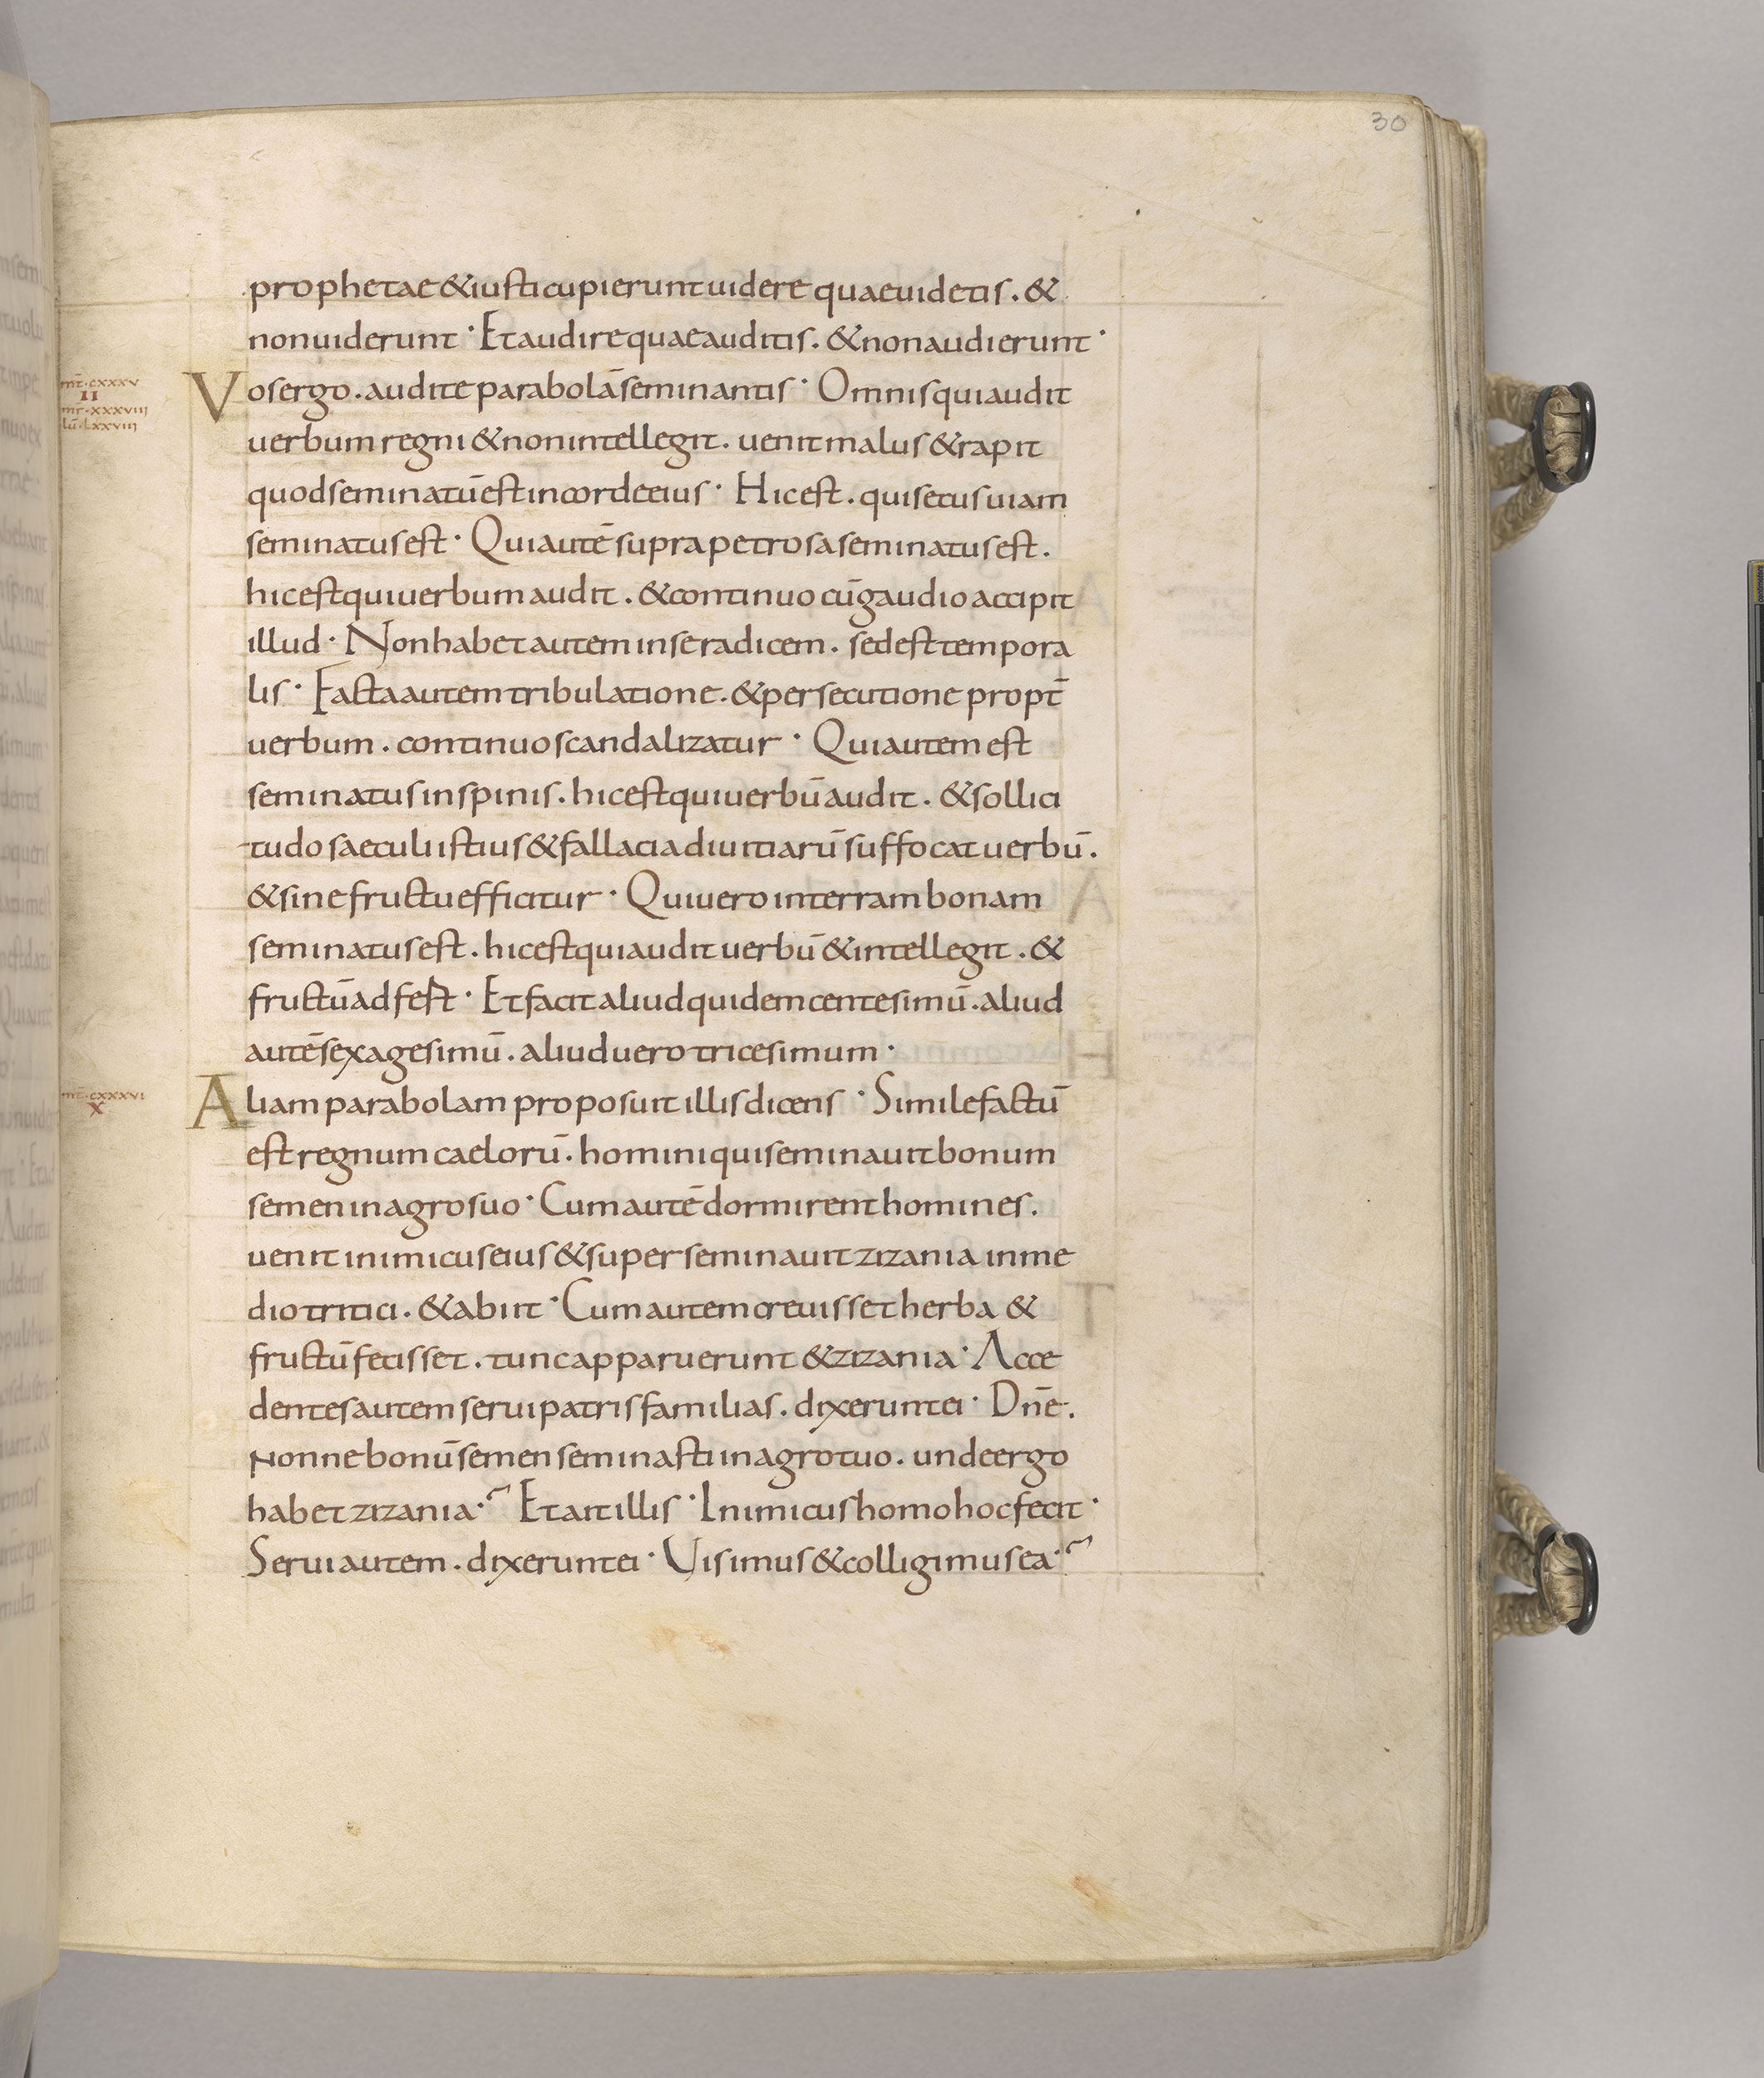 30
prophetae & iusti cupierunt uidere quae uidetis. &
non uiderunt· Et audire quae auditis. & non audierunt·
mt̄·cxxxv
II
mr·xxxviii
lū·lxxviii
Vos ergo. audite parabolā seminantis· Omnis qui audit
uerbum regni & non intellegit. uenit malus & rapit
quod seminatū est in corde eius· Hic est. qui secus uiam
seminatus est· Qui autē supra petrosa seminatus est.
hic est qui uerbum audit. & continuo cū gaudio accipit
illud· Non habet autem in se radicem. sed est tempora
lis· Facta autem tribulatione. & persecutione propt̄
uerbum. continuo scandalizatur· Qui autem est
seminatus in spinis. hic est qui uerbū audit. & sollici
tudo saeculi istius & fallacia diuitiarū suffocat uerbū.
& sine fructu efficitur· Qui uero in terram bonam
seminatus est. hic est qui audit uerbū & intellegit. &
fructū adfert· Et facit aliud quidem centesimū. aliud
autē sexagesimū. aliud uero tricesimum·
mt̄·cxxxvi
X
Aliam parabolam proposuit illis dicens· Simile factū
est regnum caelorū. homini qui seminauit bonum
semen in agro suo· Cum autē dormirent homines.
uenit inimicus eius & superseminauit zizania in me
dio tritici. & abiit· Cum autem creuisset herba &
fructū fecisset. tunc apparuerunt & zizania· Acce
dentes autem serui patris familias. dixerunt ei· Dn̄e.
Nonne bonū semen seminasti in agro tuo. unde ergo
habet zizania·~ Et ait illis· Inimicus homo hoc fecit·
Serui autem. dixerunt ei· Vis imus & colligimus ea·~